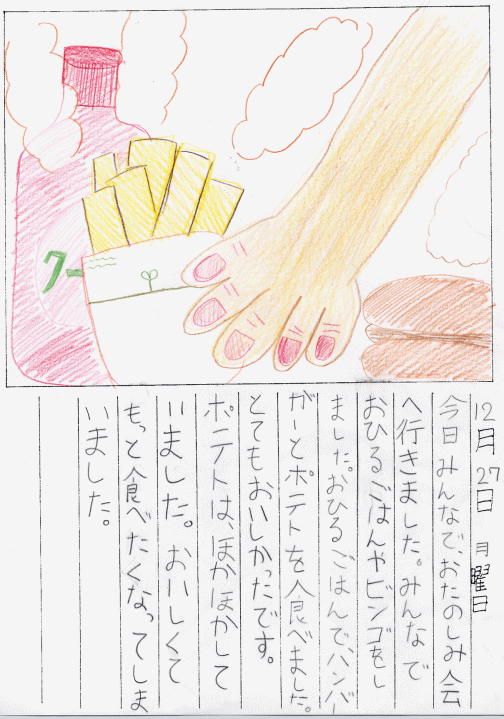 クー
12月27日 月曜日
今日みんなで、おたのしみ会
へ行きました。みんなで
おひるごはんやビンゴをし
ました。おひるごはんで、ハンバ
がーとポテトを食べました。
とてもおいしかったです。
ポテトは、ほかほかして
いました。おいしくて
もっと食べたくなってしま
いました。